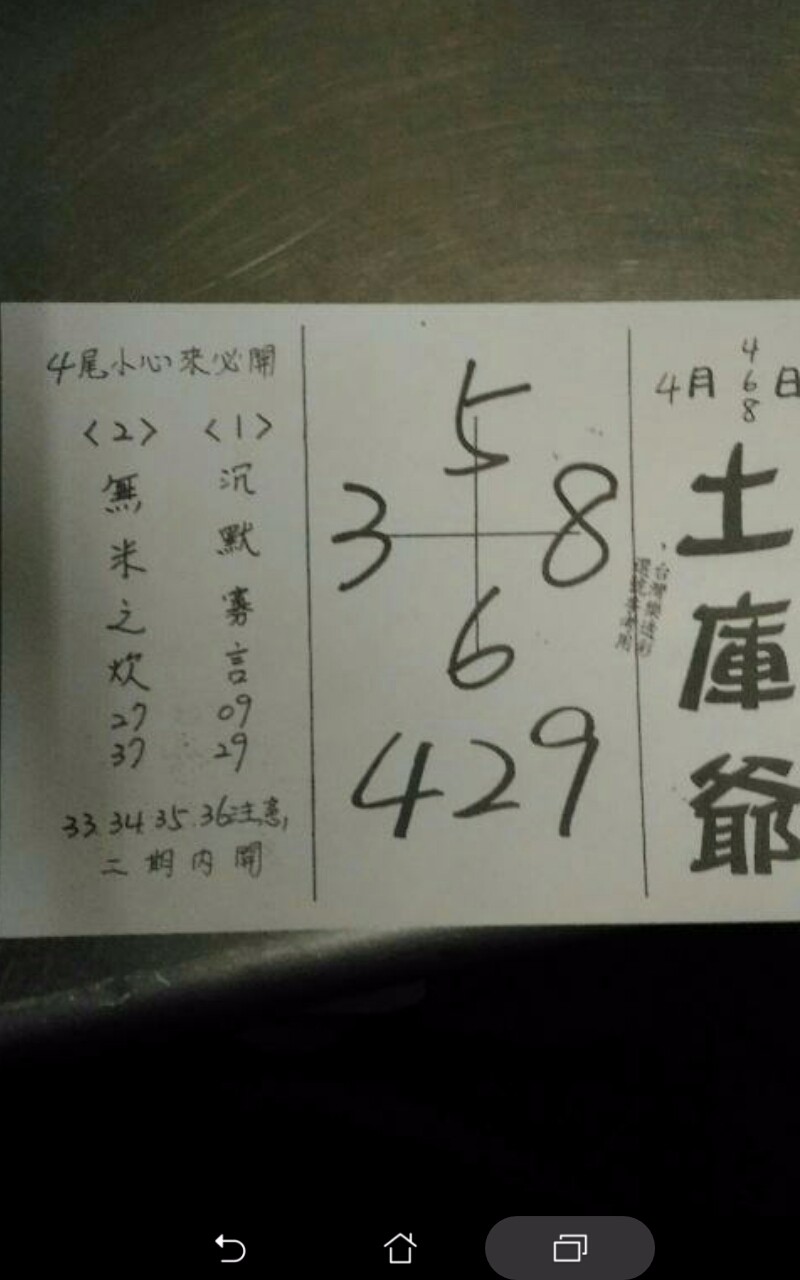 4月4 6 8日
土庫爺
5
3 8
6
429
4尾小心來必開
<1>
沉默寡言
09
29
<2>
無米之炊
27
37
33.34.35.36注意,
二期內開